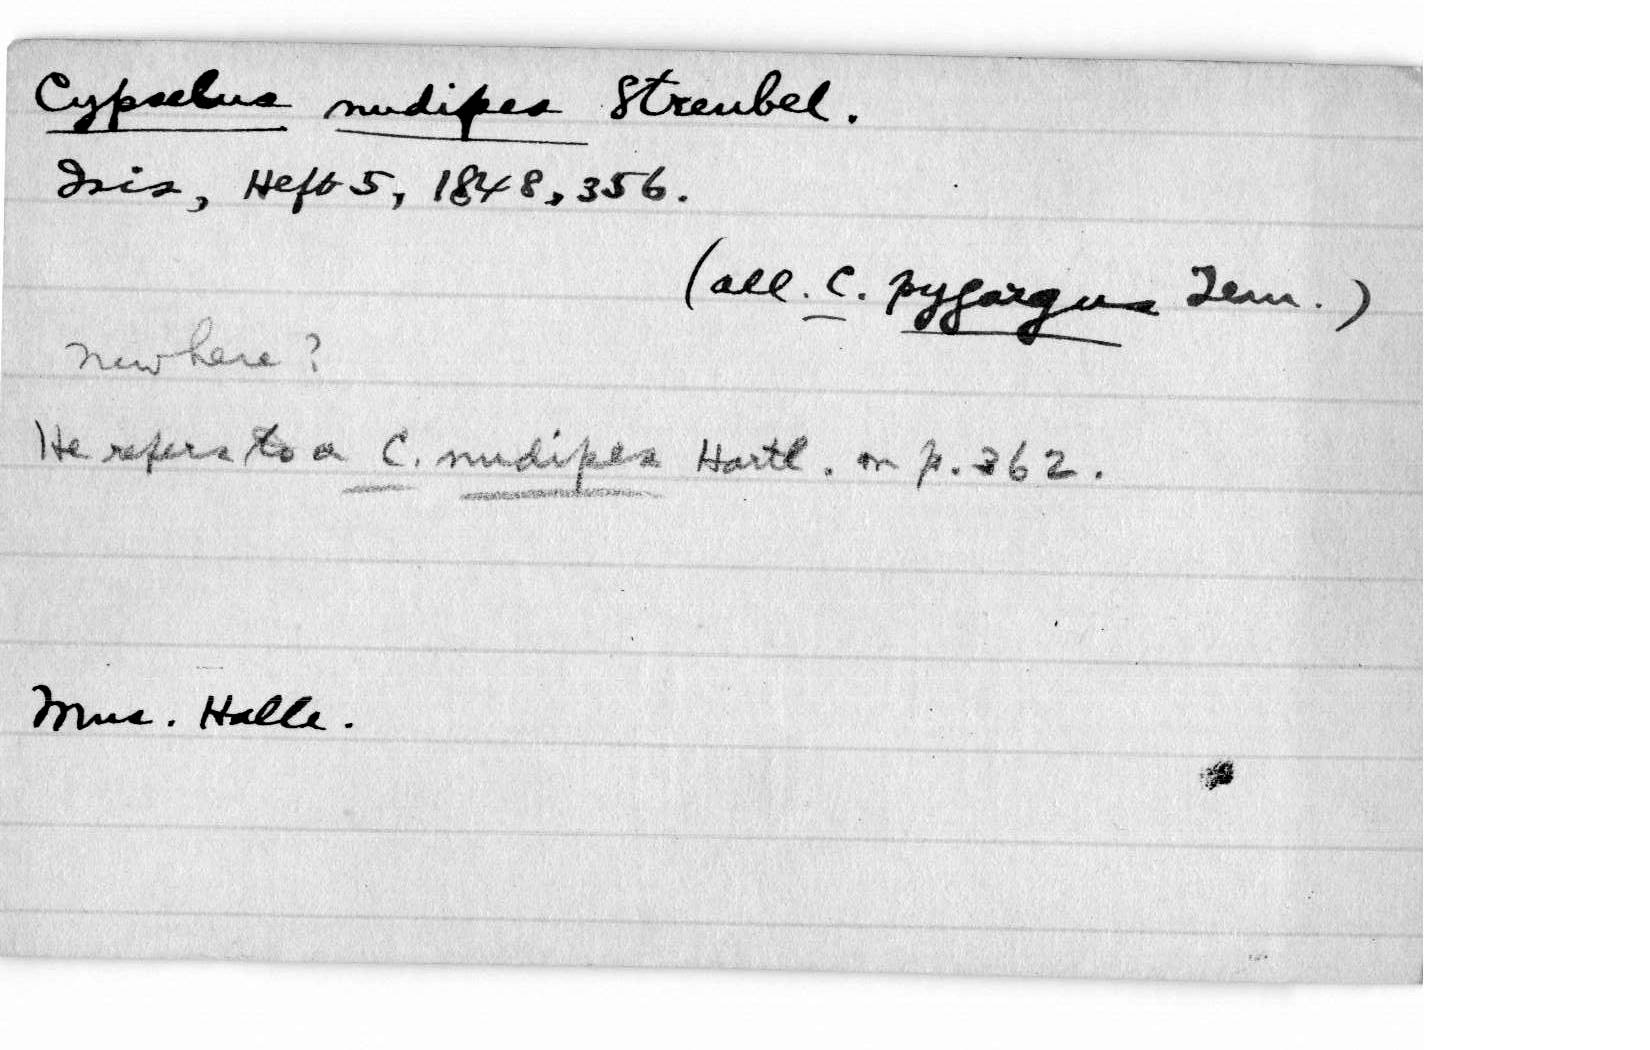 Cypselus nudipes Streubel.
Isis, Heft 5, 1848, 356.
(all. C. pygargus Tem.)
new here?
He refers to a C. nudipes Hartl. on p. 362.
Mus. Halle.